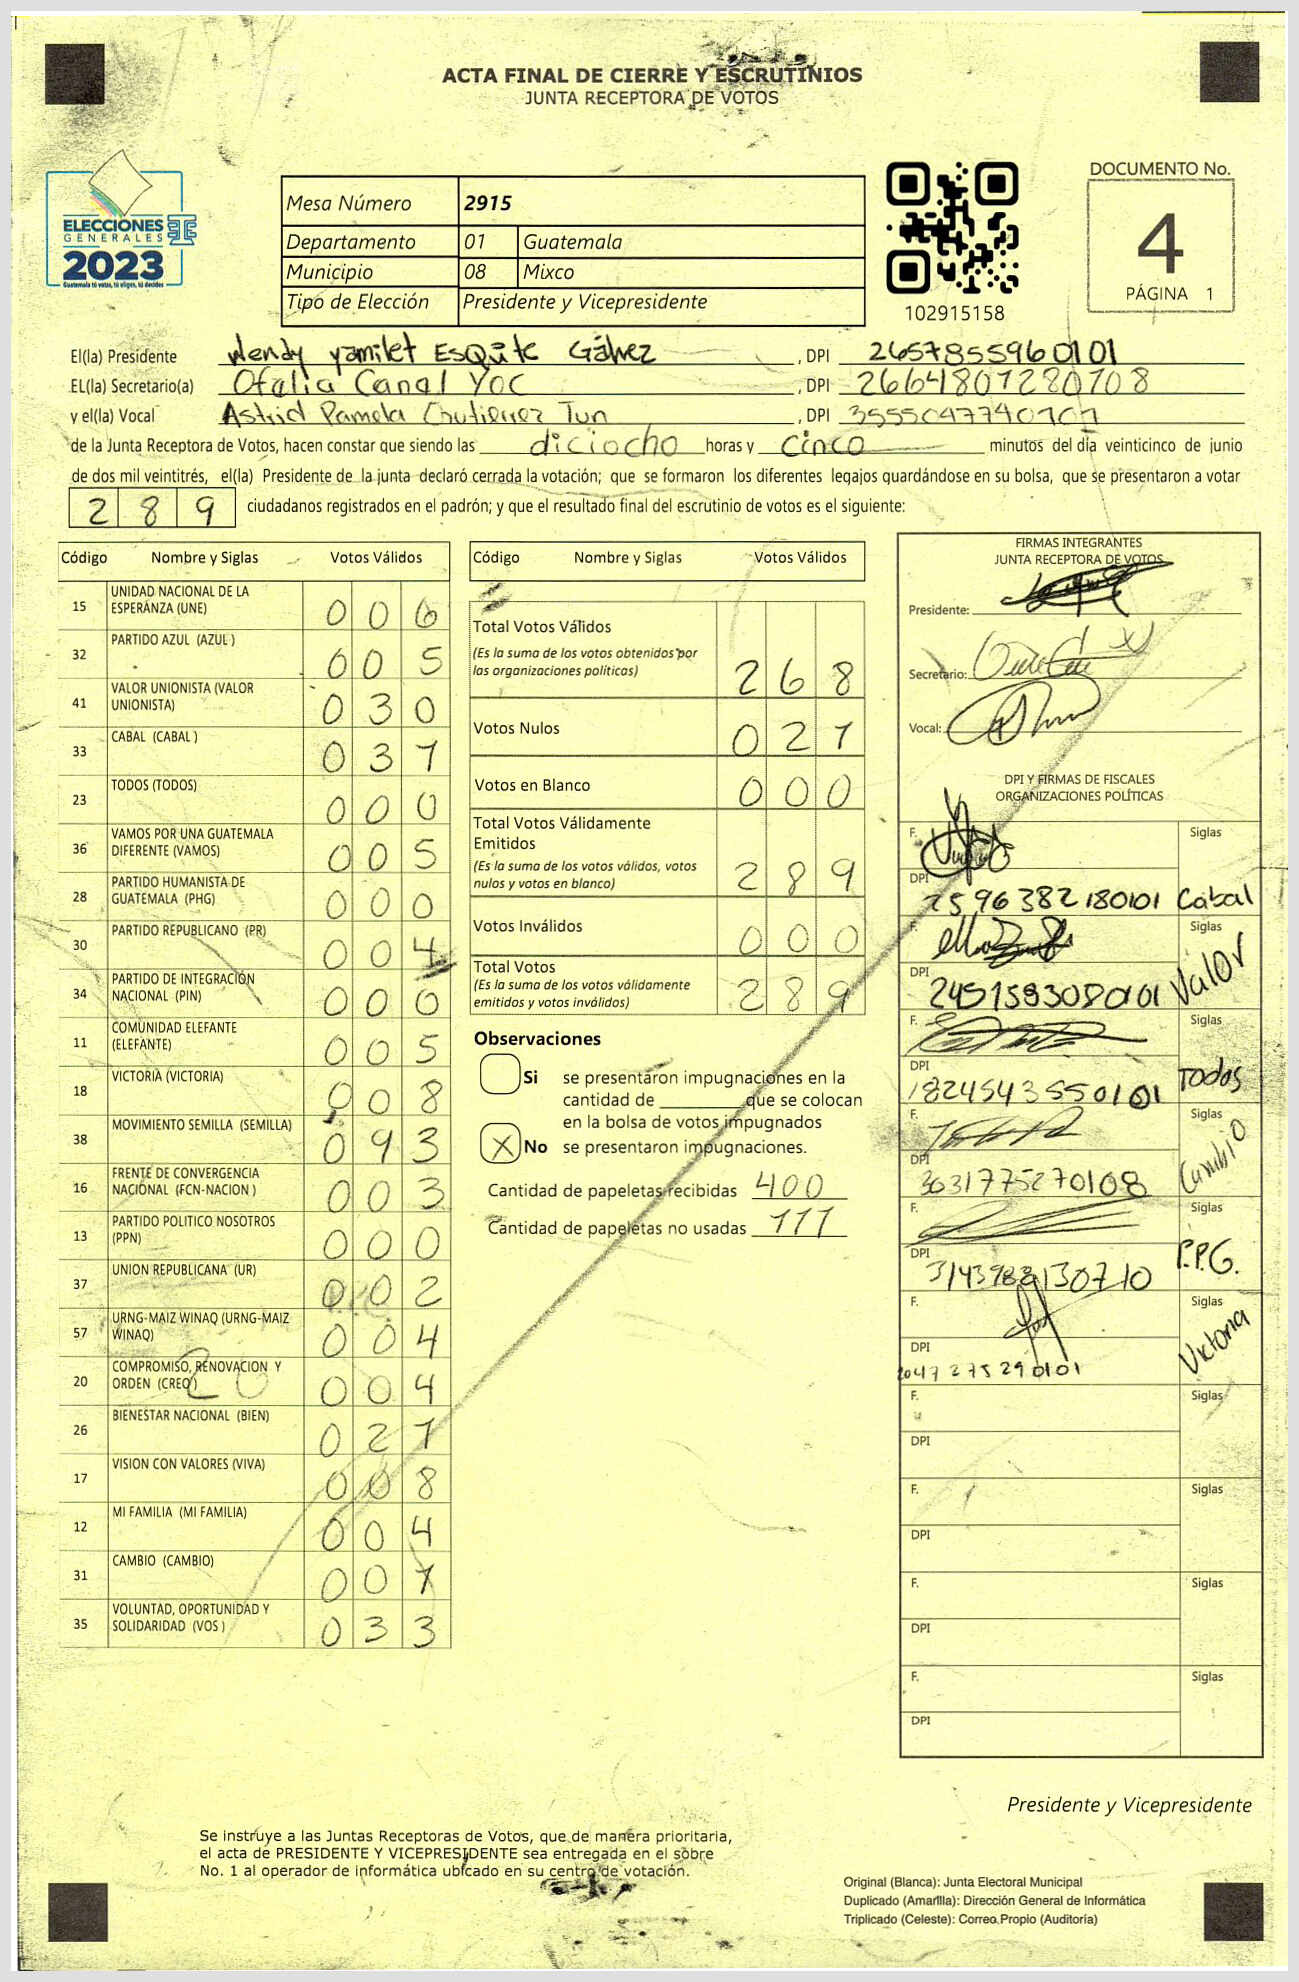 ACTA FINAL DE CIERRE Y ESCRUTINIOS
JUNTA RECEPTORA DE VOTOS
ELECCIONES
GENERALES
2023
Guatemala tú votas, tú eliges, tú decides
Mesa Número 2915
Departamento 01 Guatemala
Municipio 08 Mixco
Tipo de Elección Presidente y Vicepresidente
102915158
DOCUMENTO No.
4
PÁGINA 1
El(la) Presidente Wendy yamilet EsQuite Gálvez, DPI 2657855960101
EL(la) Secretario(a) Ofelia Canal Yoc, DPI 2664801280108
y el(la) Vocal Astrid Pamela Gutierrez Tun, DPI 3555047740101
de la Junta Receptora de Votos, hacen constar que siendo las diciocho horas y cinco minutos del día veinticinco de junio
de dos mil veintitrés, el(la) Presidente de la junta declaró cerrada la votación; que se formaron los diferentes legajos guardándose en su bolsa, que se presentaron a votar
289 ciudadanos registrados en el padrón; y que el resultado final del escrutinio de votos es el siguiente:
Código Nombre y Siglas Votos Válidos
15 UNIDAD NACIONAL DE LA ESPERANZA (UNE) 006
32 PARTIDO AZUL (AZUL ) 005
41 VALOR UNIONISTA (VALOR UNIONISTA) 030
33 CABAL (CABAL ) 031
23 TODOS (TODOS) 000
36 VAMOS POR UNA GUATEMALA DIFERENTE (VAMOS) 005
28 PARTIDO HUMANISTA DE GUATEMALA (PHG) 000
30 PARTIDO REPUBLICANO (PR) 004
34 PARTIDO DE INTEGRACIÓN NACIONAL (PIN) 000
11 COMUNIDAD ELEFANTE (ELEFANTE) 005
18 VICTORIA (VICTORIA) 008
38 MOVIMIENTO SEMILLA (SEMILLA) 093
16 FRENTE DE CONVERGENCIA NACIONAL (FCN-NACION ) 003
13 PARTIDO POLITICO NOSOTROS (PPN) 000
37 UNION REPUBLICANA (UR) 002
57 URNG-MAIZ WINAQ (URNG-MAIZ WINAQ) 004
20 COMPROMISO, RENOVACION Y ORDEN (CREO ) 004
26 BIENESTAR NACIONAL (BIEN) 021
17 VISION CON VALORES (VIVA) 008
12 MI FAMILIA (MI FAMILIA) 004
31 CAMBIO (CAMBIO) 001
35 VOLUNTAD, OPORTUNIDAD Y SOLIDARIDAD (VOS ) 033
Código Nombre y Siglas Votos Válidos
Total Votos Válidos
(Es la suma de los votos obtenidos por
las organizaciones politicas) 268
Votos Nulos 021
Votos en Blanco 000
Total Votos Válidamente
Emitidos
(Es la suma de los votos válidos, votos
nulos y votos en blanco) 289
Votos Inválidos 000
Total Votos
(Es la suma de los votos válidamente
emitidos y votos inválidos) 289
Observaciones
Si se presentaron impugnaciones en la
cantidad de ________ que se colocan
en la bolsa de votos impugnados
X No se presentaron impugnaciones.
Cantidad de papeletas recibidas 400
Cantidad de papeletas no usadas 111
FIRMAS INTEGRANTES
JUNTA RECEPTORA DE VOTOS
Presidente:
Secretario:
Vocal:
DPI Y FIRMAS DE FISCALES
ORGANIZACIONES POLÍTICAS
F. Siglas
DPI 2596382180101 Cabal
F. Siglas
DPI 2451583080101 Valor
F. Siglas
DPI 1824543550101 Todos
F. Siglas
DPI 3031775270108 Cambio
F. Siglas
DPI P.P.G.
F. Siglas
DPI 2047275290101 Victoria
F. Siglas
DPI
F. Siglas
DPI
F. Siglas
DPI
F. Siglas
DPI
Presidente y Vicepresidente
Se instruye a las Juntas Receptoras de Votos, que de manera prioritaria,
el acta de PRESIDENTE Y VICEPRESIDENTE sea entregada en el sobre
No. 1 al operador de informática ubicado en su centro de votación.
Original (Blanca): Junta Electoral Municipal
Duplicado (Amarilla): Dirección General de Informática
Triplicado (Celeste): Correo Propio (Auditoría)